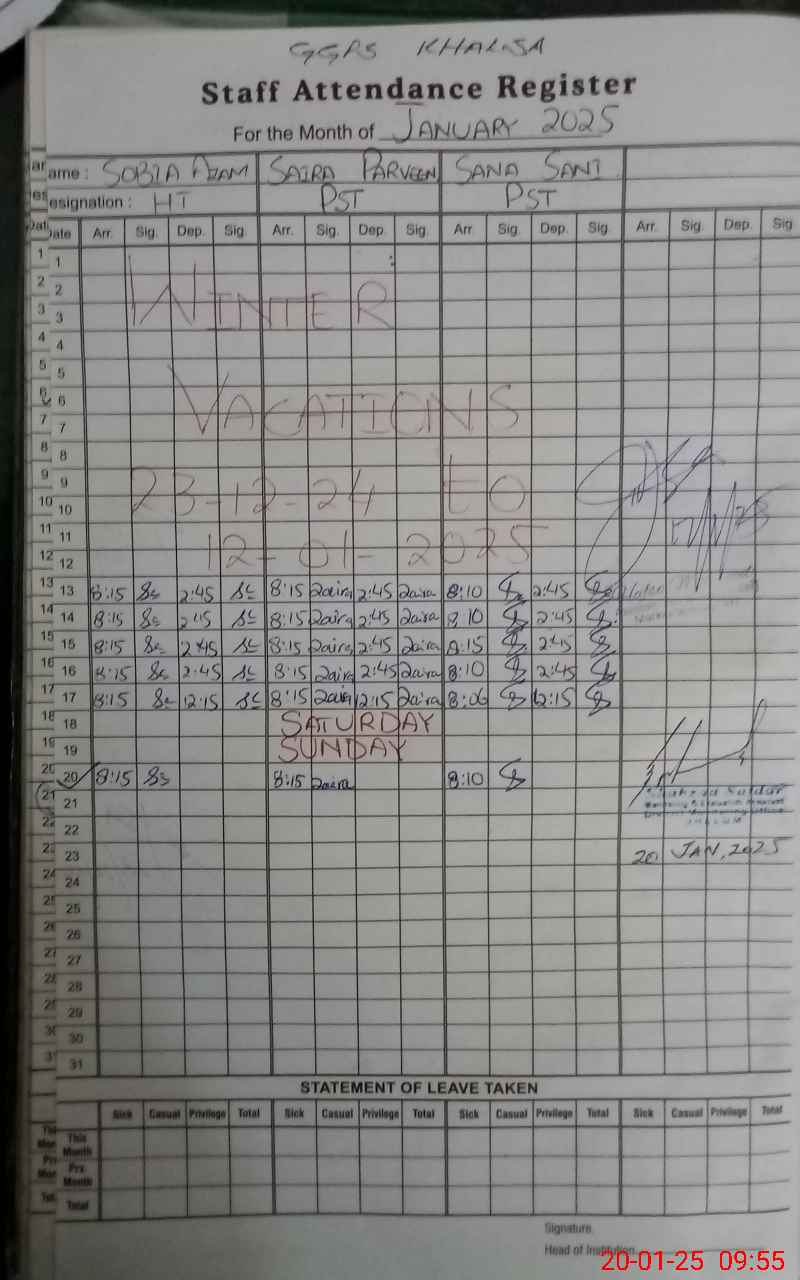 GGPS KHALSA
Staff Attendance Register
For the Month of JANUARY 2025
ame : SOBIA AZAM SAIRA PARVEEN SANA SANI
esignation : HT PST PST
Date Arr. Sig. Dep. Sig. Arr. Sig. Dep. Sig. Arr. Sig. Dep. Sig. Arr. Sig. Dep. Sig
1 1
2 2
WINTER
3 3
4 4
5 5
6 6
VACATIONS
7 7
8 8
9 9
23-12-24 to
10 10
11 11
12-01-2025
12 12
13 13 8:15 2:45 8:15 2:45 8:10 2:45
14 14 8:15 2:45 8:15 2:45 8:10 2:45
15 15 8:15 2:45 8:15 2:45 8:15 2:45
16 16 8:15 2:45 8:15 2:45 8:10 2:45
17 17 8:15 12:15 8:15 12:15 8:06 12:15
18 18 SATURDAY
19 19 SUNDAY
20 20 8:15 8:15 8:10
21 21
22 22
23 23 20 JAN, 2025
24 24
25 25
26 26
27 27
28 28
29 29
30 30
31 31
STATEMENT OF LEAVE TAKEN
Sick Casual Privilege Total Sick Casual Privilege Total Sick Casual Privilege Total Sick Casual Privilege Total
This Month
Prx Month
Total
Signature
Head of Institution
20-01-25 09:55